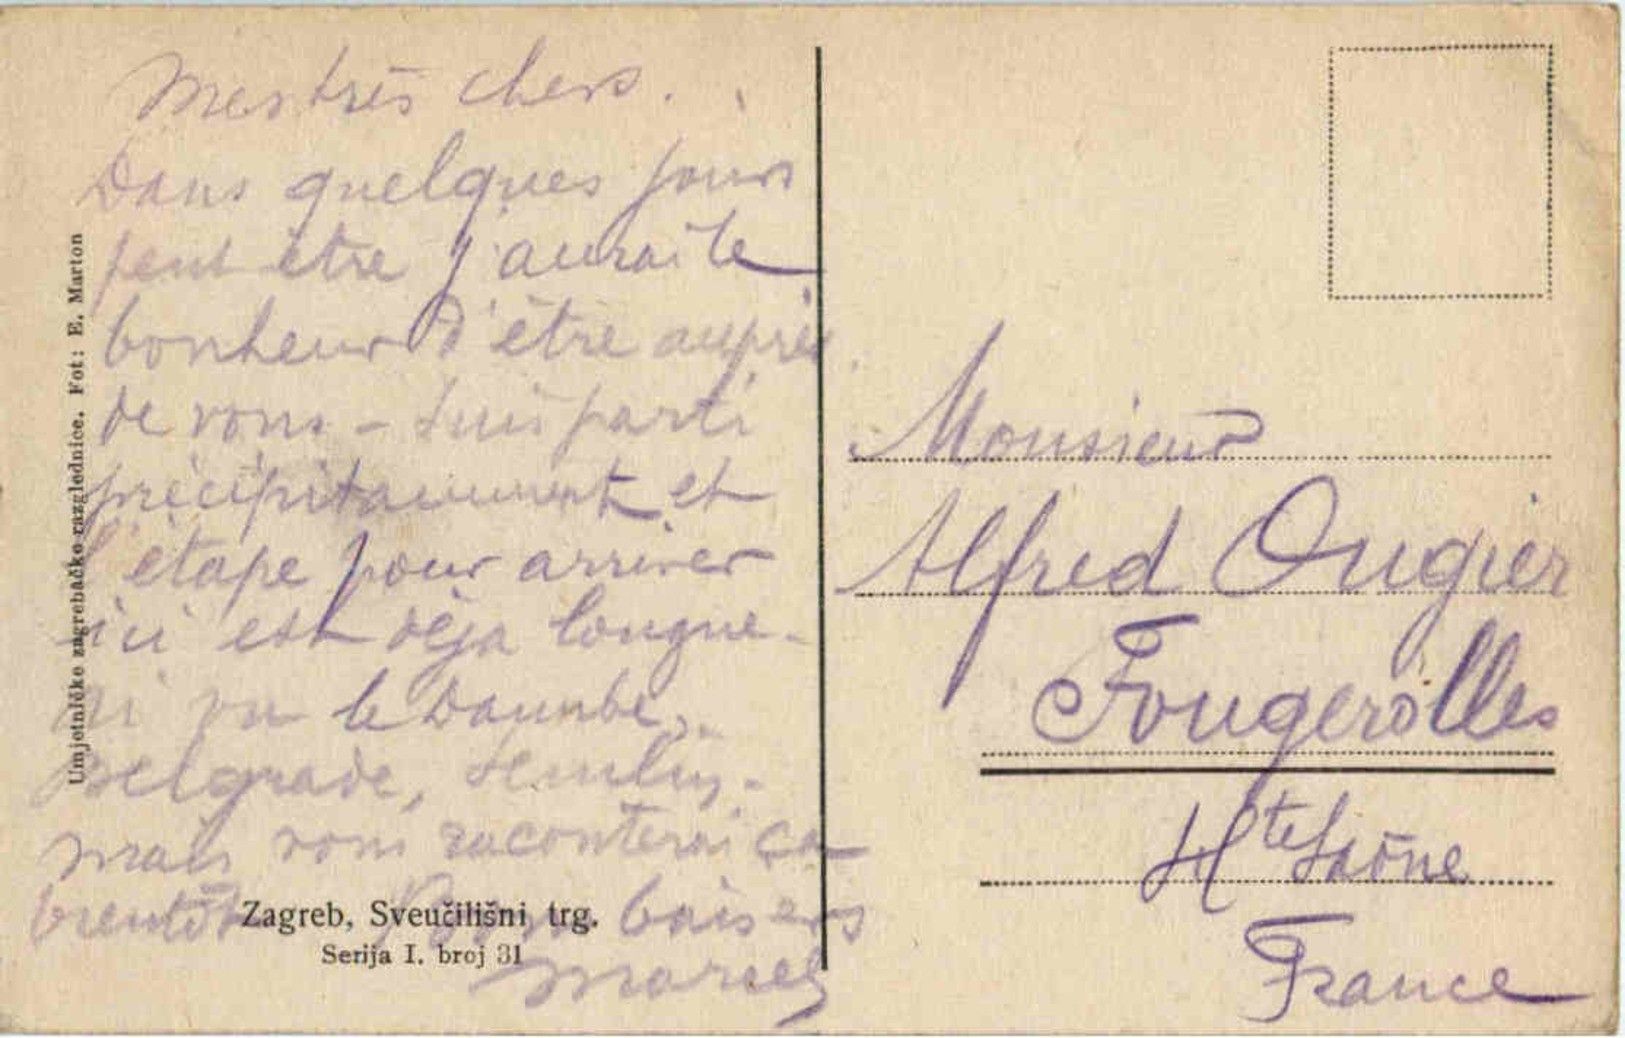 Mes très chers.
Dans quelques jours
peut être j'aurai le
bonheur d'être auprès
de vous - suis parti
précipitamment et
l'étape pour arriver
ici est déjà longue -
Ai vu le Danube,
Belgrade, Semlin, -
mais vous raconterai ça
bientôt Bons baisers
Marcel
Umjetničke zagrebačke razglednice. Fot: E. Marton
Zagreb, Sveučilišni trg.
Serija I. broj 31
Monsieur
Alfred Ougier
Fougerolles
Hte Saône
France